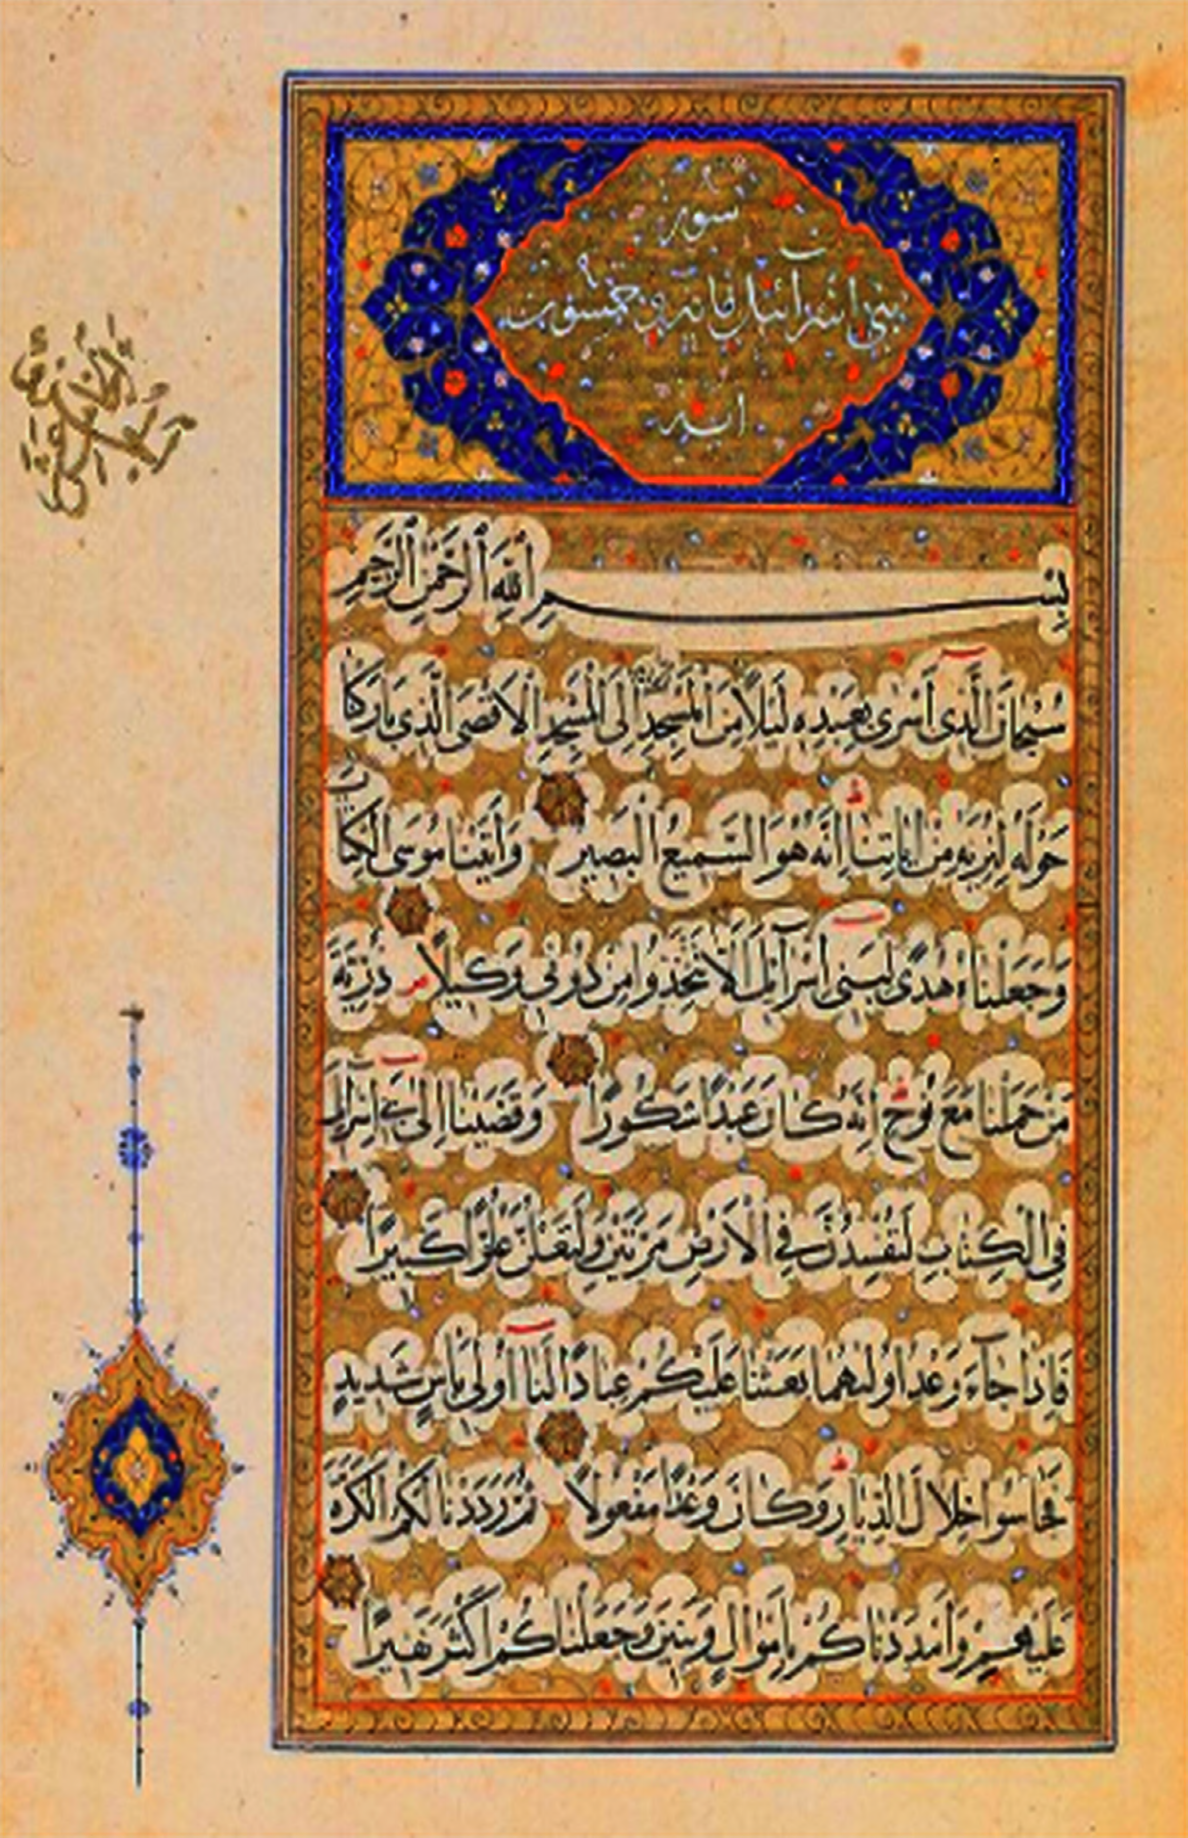 سورة
بنى اسرائيل مائة وخمسون
اية
بِسْمِ اللهِ الرَّحْمٰنِ الرَّحِيمِ
سُبْحَانَ الَّذِى أَسْرٰى بِعَبْدِهِ لَيْلًا مِنَ الْمَسْجِدِ إِلَى الْمَسْجِدِ الْاَقْصَى الَّذِى بَارَكْنَا
حَوْلَهُ لِنُرِيَهُ مِنْ اٰيَاتِنَا اِنَّهُ هُوَ السَّمِيعُ الْبَصِيرُ وَاٰتَيْنَا مُوسَى الْكِتَابَ
وَجَعَلْنَاهُ هُدًى لِبَنِى اِسْرَآئِيلَ اَلَّا تَتَّخِذُوا مِنْ دُونِى وَكِيلًا ذُرِّيَّةَ
مَنْ حَمَلْنَا مَعَ نُوحٍ اِنَّهُ كَانَ عَبْدًا شَكُورًا وَقَضَيْنَا اِلٰى بَنِى اِسْرَآئِيلَ
فِى الْكِتَابِ لَتُفْسِدُنَّ فِى الْاَرْضِ مَرَّتَيْنِ وَلَتَعْلُنَّ عُلُوًّا كَبِيرًا
فَاِذَا جَآءَ وَعْدُ اُولٰيهُمَا بَعَثْنَا عَلَيْكُمْ عِبَادًا لَنَا اُولِى بَأْسٍ شَدِيدٍ
فَجَاسُوا خِلَالَ الدِّيَارِ وَكَانَ وَعْدًا مَفْعُولًا ثُمَّ رَدَدْنَا لَكُمُ الْكَرَّةَ
عَلَيْهِمْ وَاَمْدَدْنَاكُمْ بِاَمْوَالٍ وَبَنِينَ وَجَعَلْنَاكُمْ اَكْثَرَ نَفِيرًا